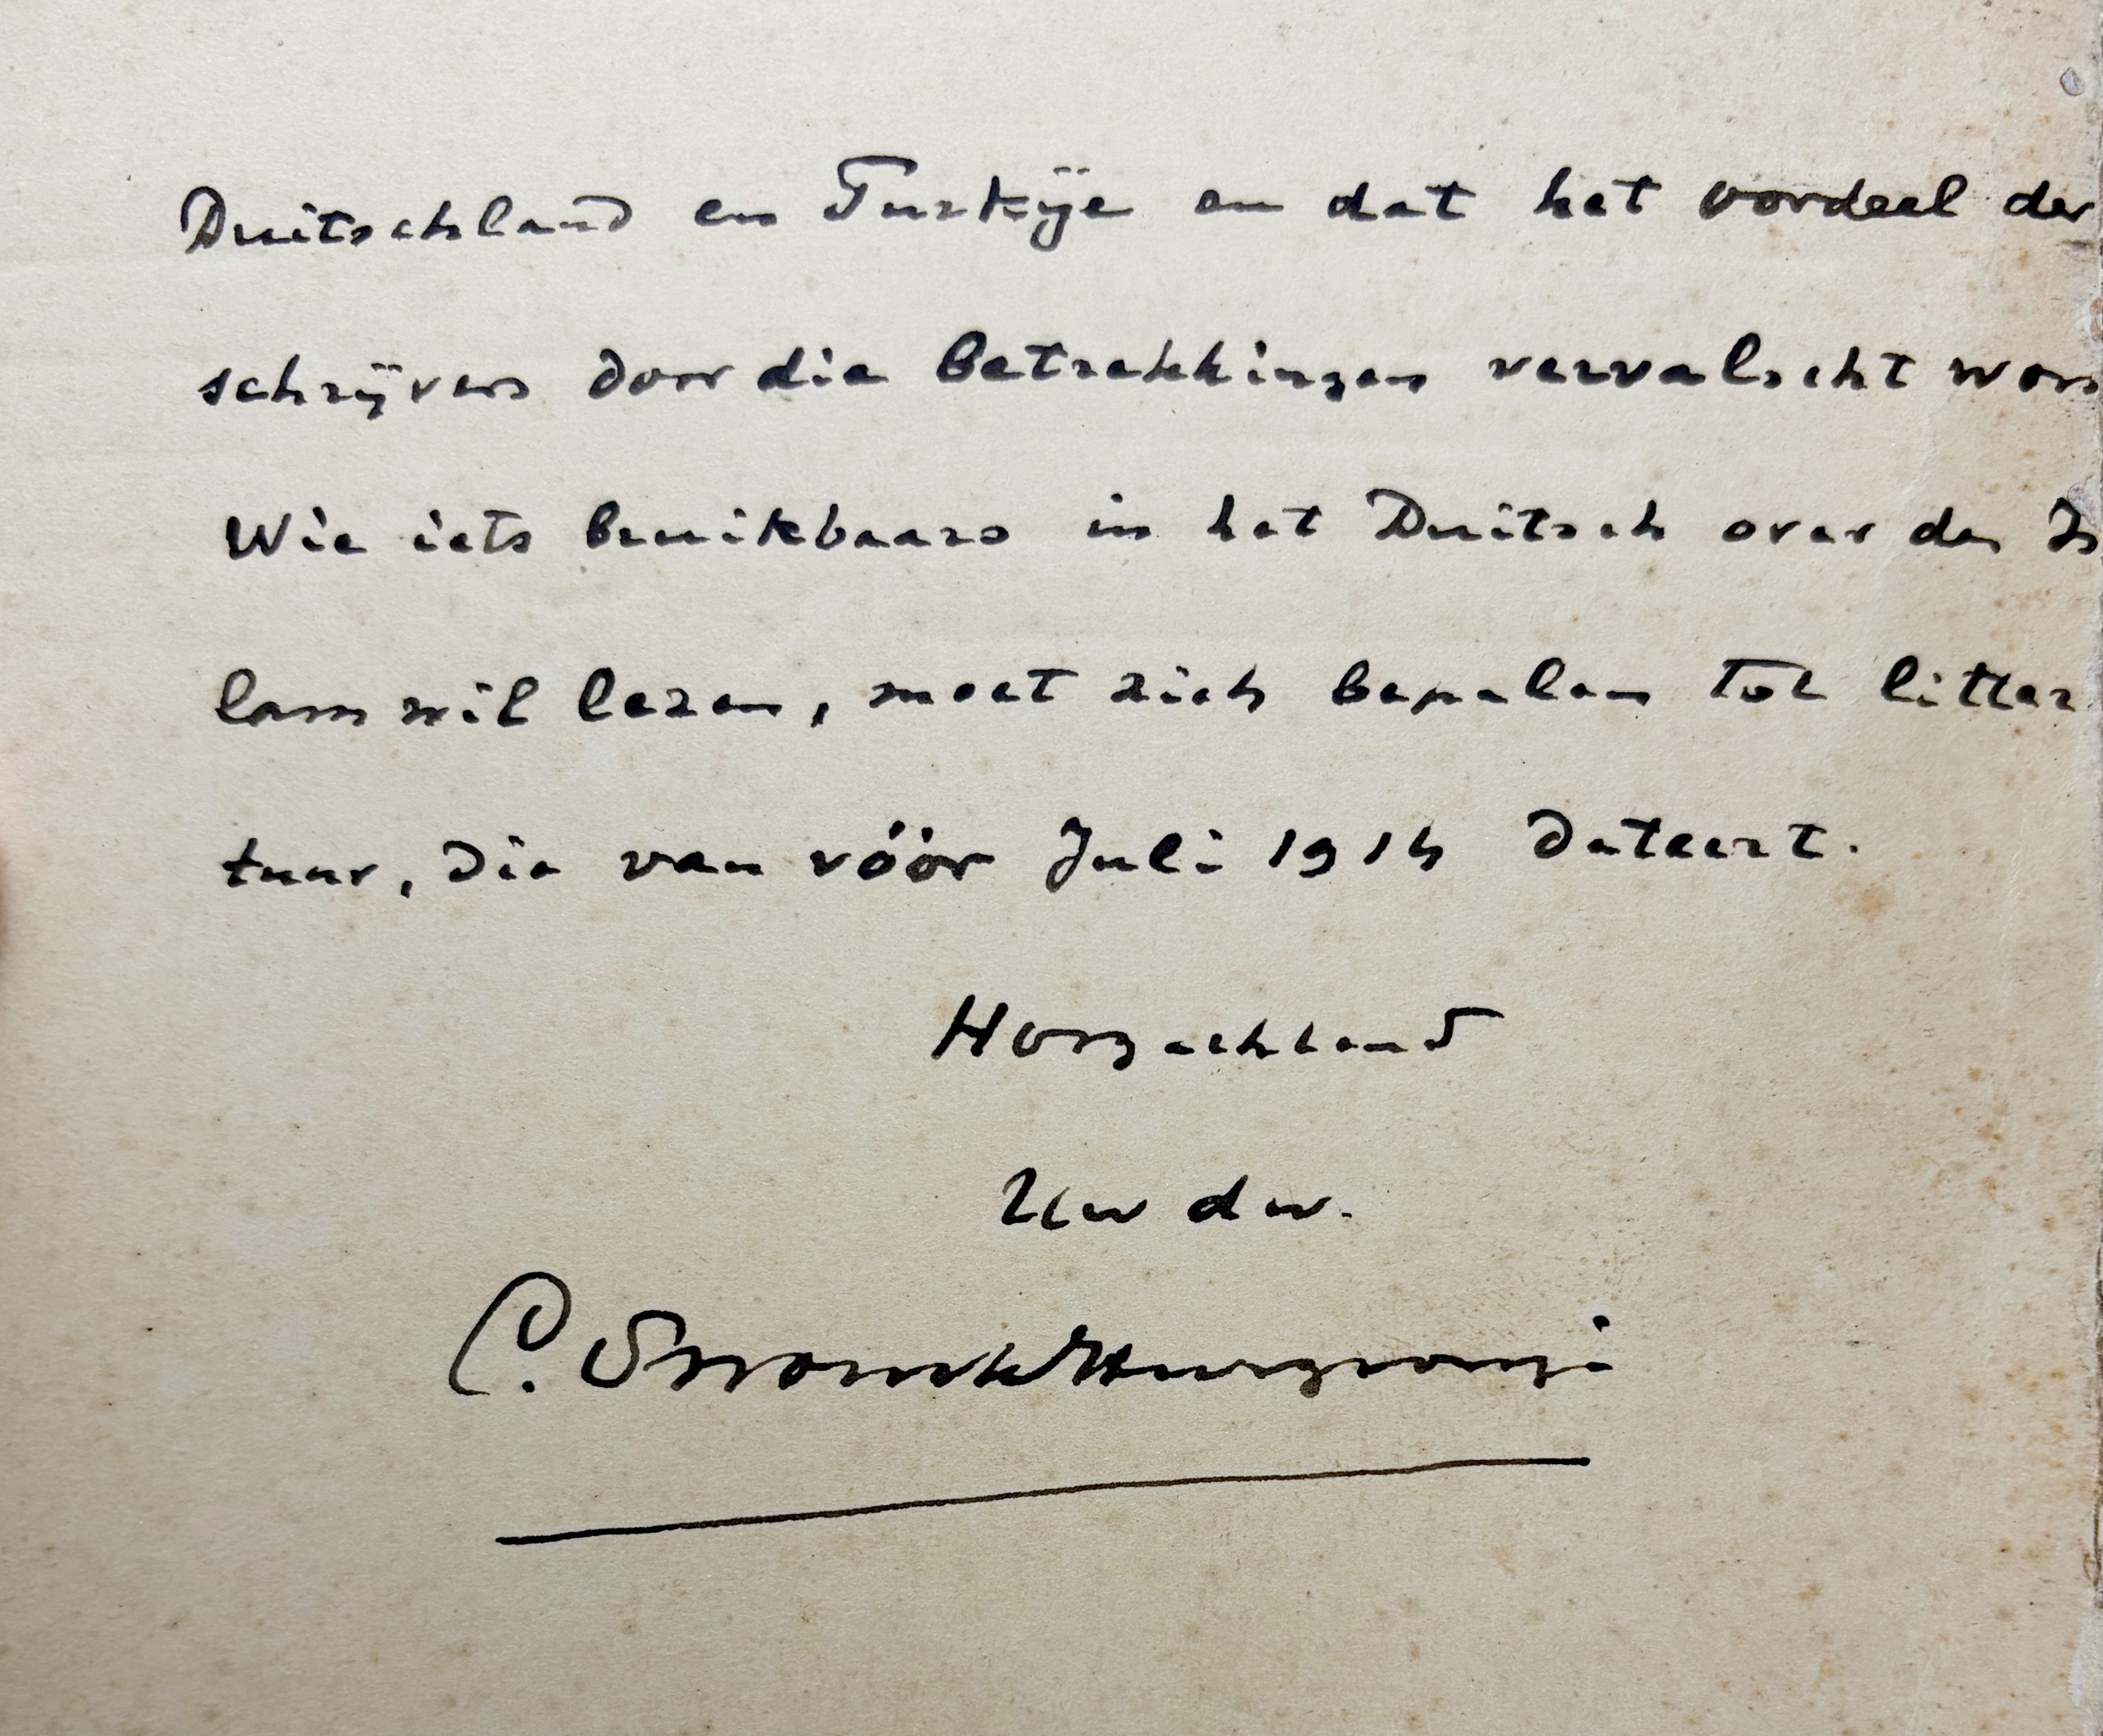 Duitschland en Turkije en dat het oordeel der
schrijvers door die betrekkingen vervalscht word
Wie iets bruikbaars in het Duitsch over den Is
lam wil lezen, moet zich bepalen tot littera
tuur, die van vóór Juli 1914 dateert.
Hoogachtend
Uw dw.
C. Snouck Hurgronje